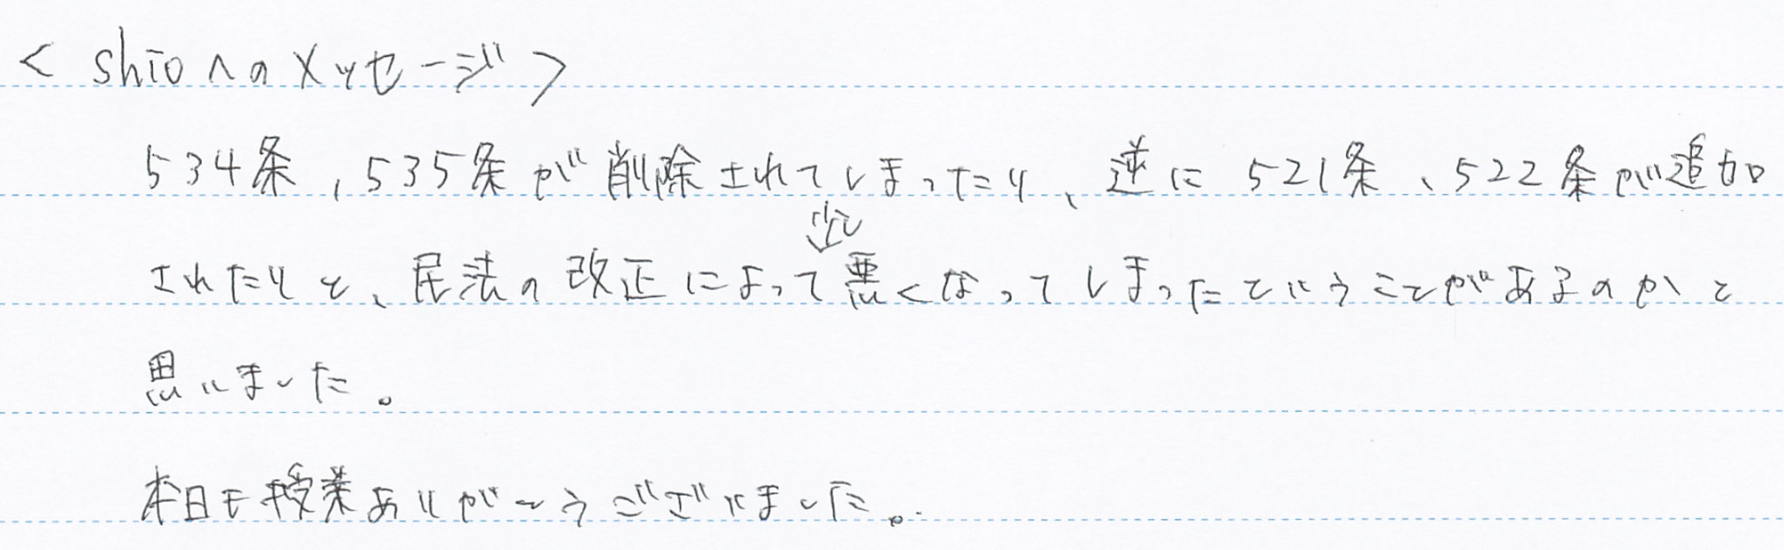 < shioへのメッセージ >
534条,535条が削除されてしまったり、逆に521条、522条が追加
されたりと、民法の改正によって悪くなってしまったということがあるのかと
思いました。
本日も授業ありがとうございました。